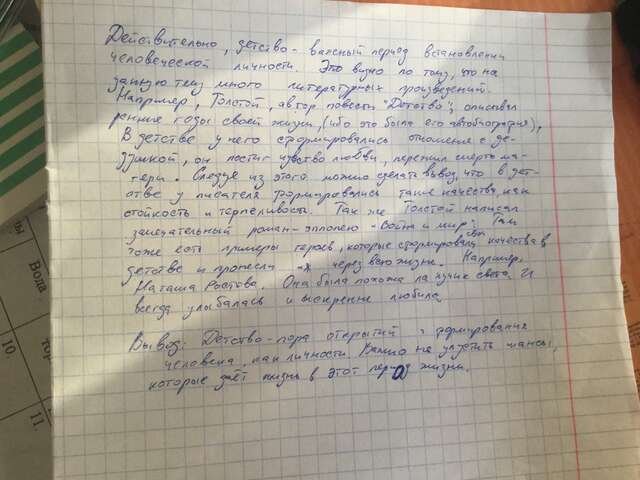 Действительно, детство - важный период в становлении
человеческой личности. Это видно по тому, что на
данную тему много литературных произведений.
Например, Толстой, автор повести "Детство", описывал
ранние годы своей жизни, (ибо это была его автобиография),
В детстве у него сформировались отношения с де-
душкой, он постиг чувство любви, пережил смерть ма-
тери. Следуя из этого можно сделать вывод, что в дет-
стве у писателя формировались такие качества, как
стойкость и терпеливость. Так же Толстой написал
замечательный роман-эпопею - "Война и мир". Там
тоже есть примеры героев, которые сформировали свои качества в
детстве и пронесли их через всю жизнь. Например,
Наташа Ростова. Она была похожа на лучик света. И
всегда улыбалась и искренне любила.
Вывод: Детство - пора открытий и формирования
человека, как личности. Важно не упустить шансы,
которые даёт жизнь в этот период жизни.
ы
Вода
10
11
тор